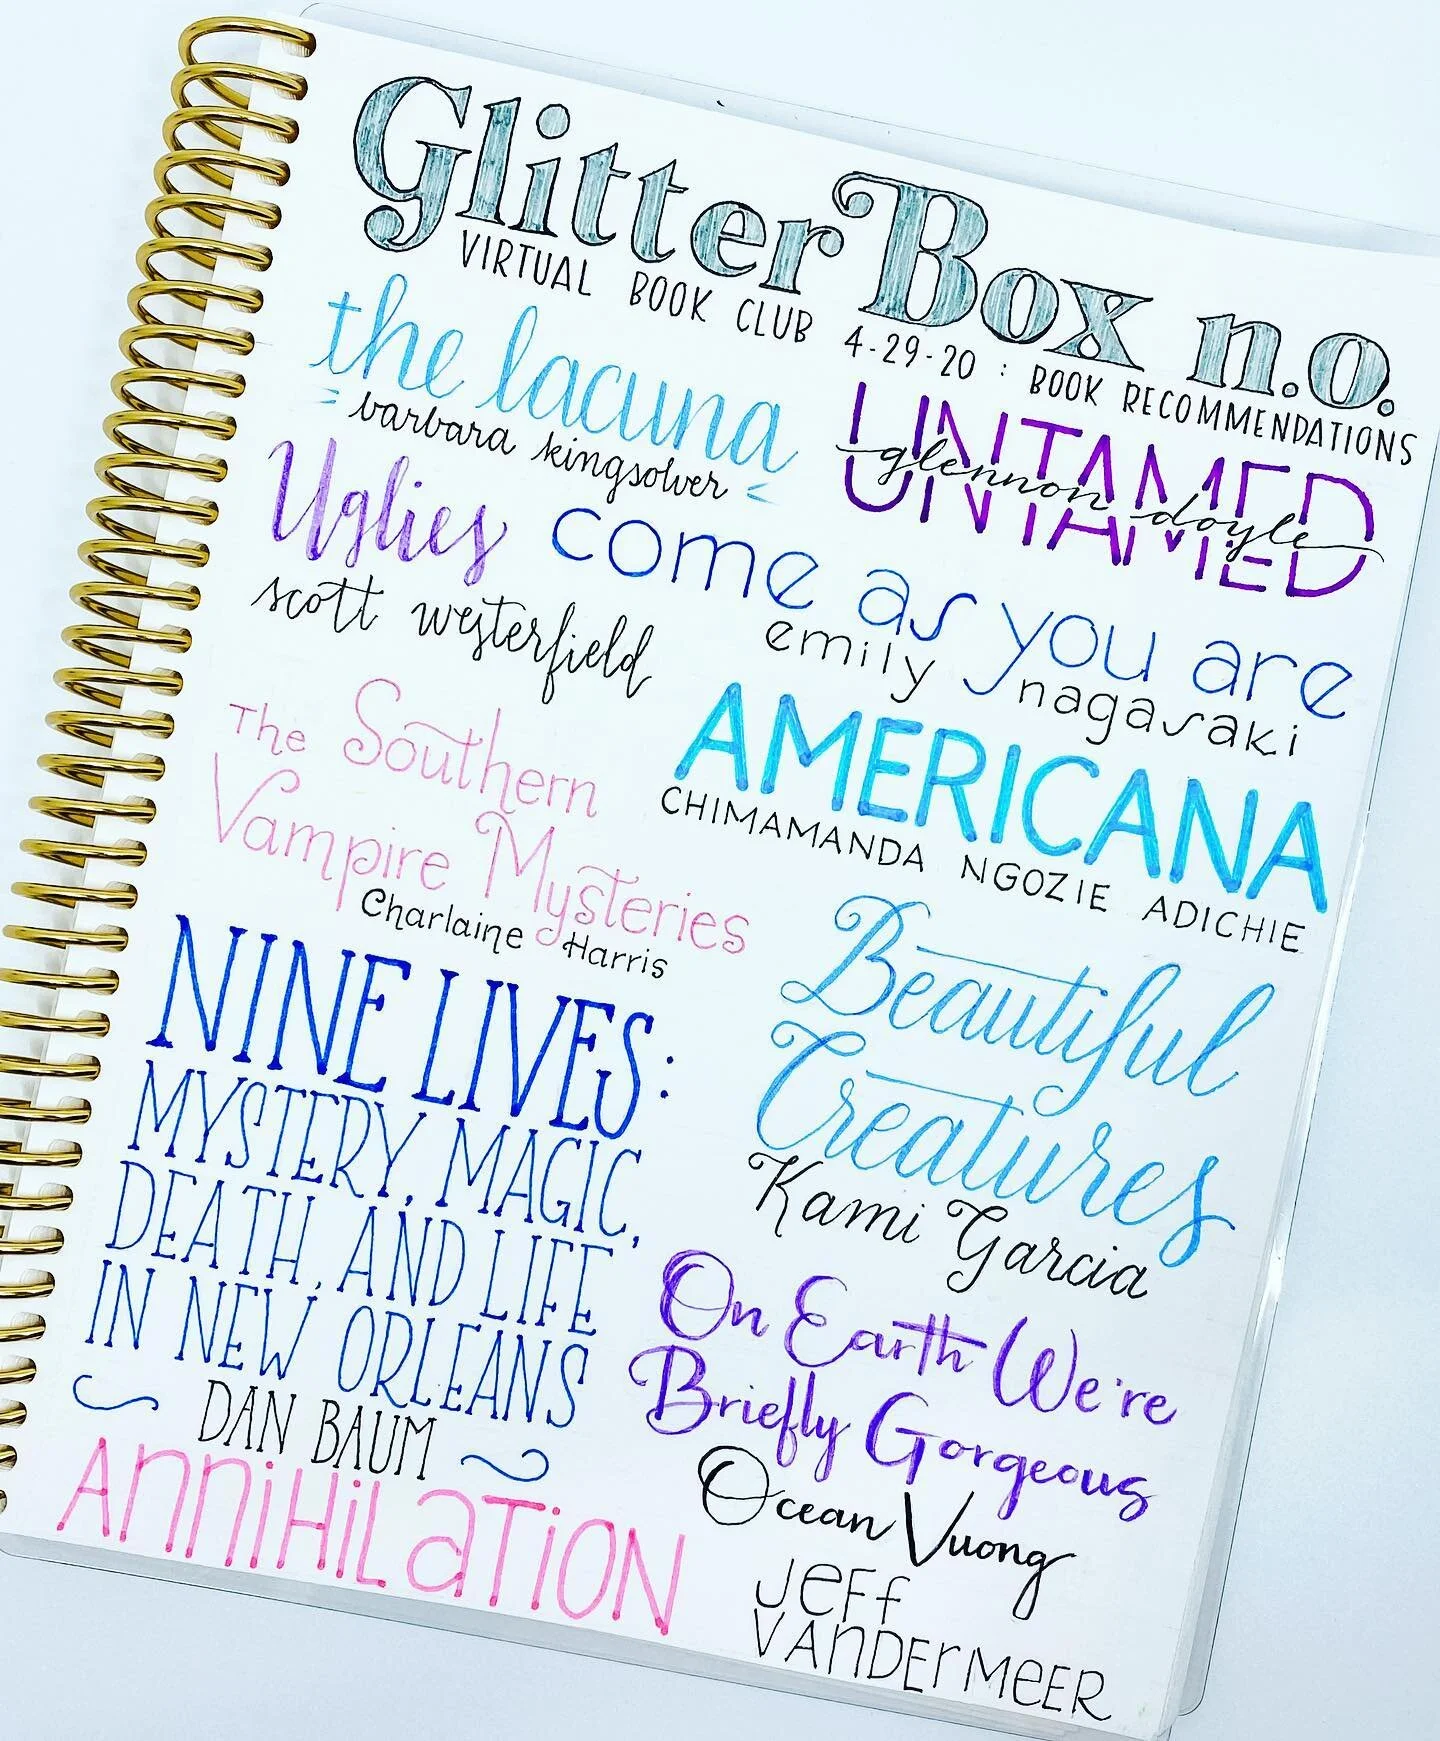 GlitterBox n.o.
VIRTUAL BOOK CLUB 4-29-20 : BOOK RECOMMENDATIONS
the lacuna
barbara kingsolver
UNTAMED
glennon doyle
Uglies
scott westerfield
come as you are
emily nagasaki
The Southern
Vampire Mysteries
Charlaine Harris
AMERICANA
CHIMAMANDA NGOZIE ADICHIE
NINE LIVES:
MYSTERY, MAGIC,
DEATH, AND LIFE
IN NEW ORLEANS
DAN BAUM
Beautiful
Creatures
Kami Garcia
On Earth We're
Briefly Gorgeous
Ocean Vuong
ANNIHILATION
JEFF
VANDERMEER